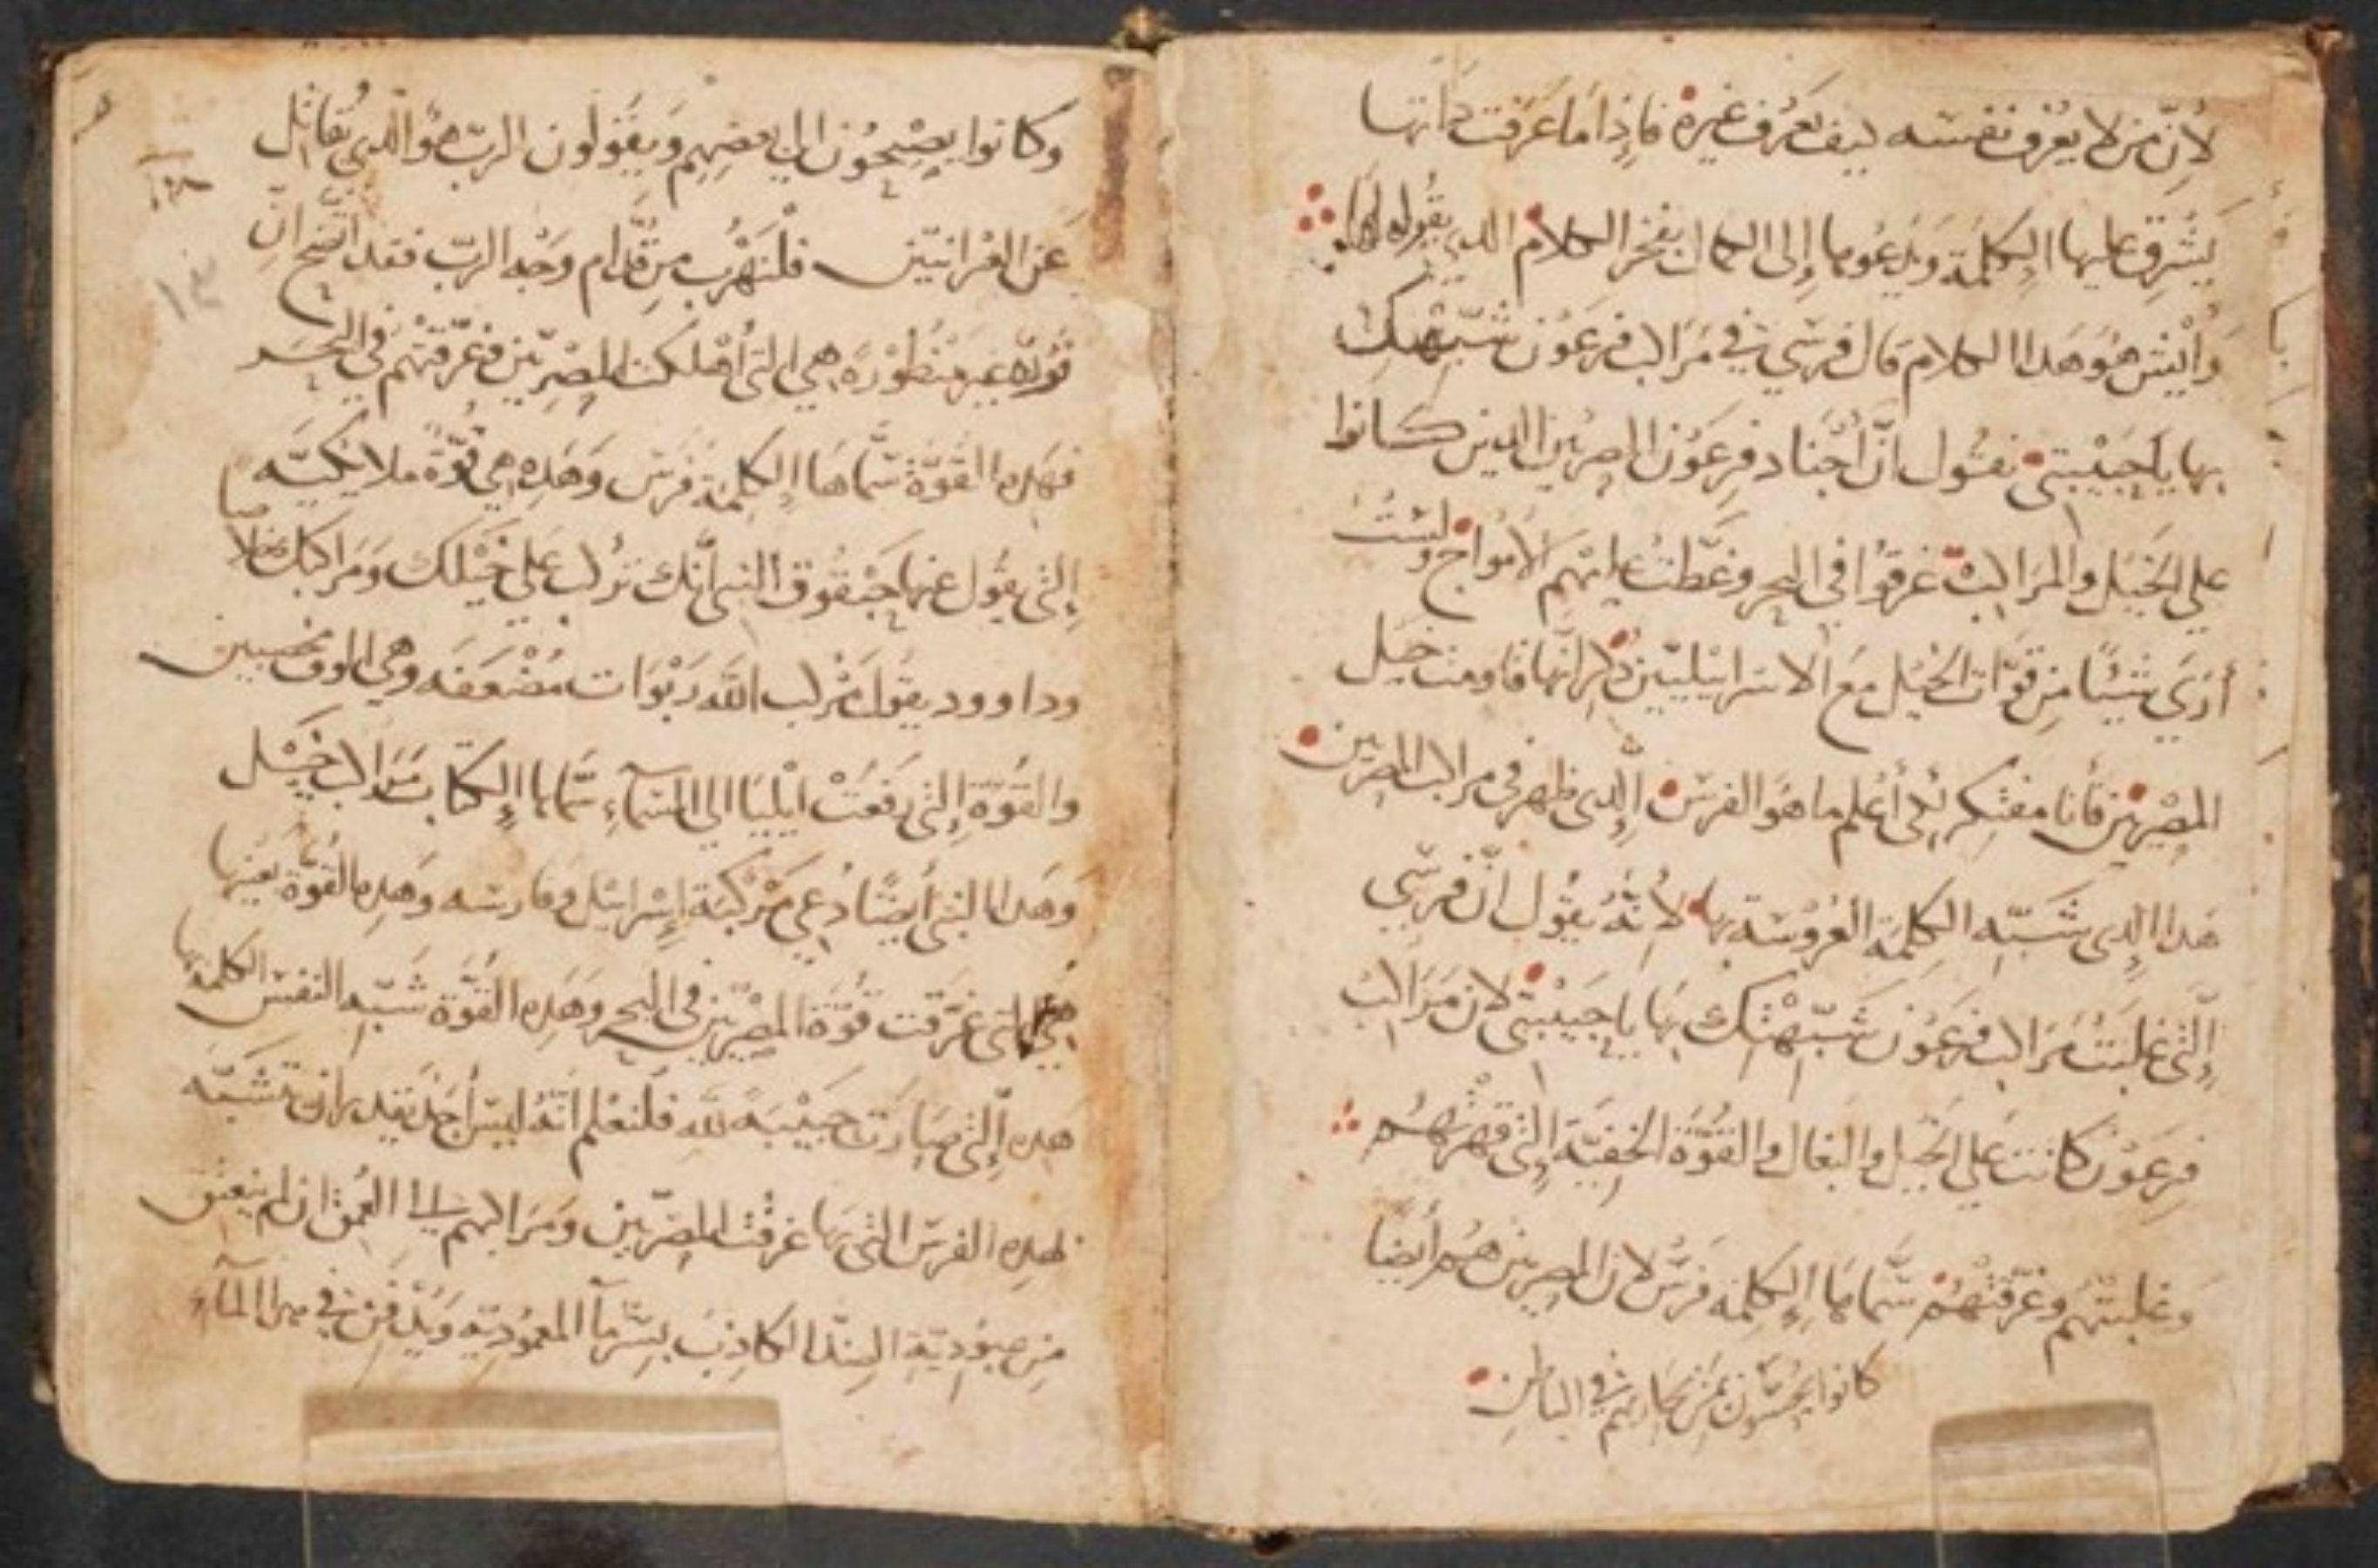 لأنّ من لا يعْرف نفسه كيف يَعرف غيره فإذا ما عَرَفت ذاتها
يُشرِق عليها الكلمَة ويَدعُوها إلى الكمال بفخر الكلام الذي يقوله لها
وأيش هُوَ هَدا الكلام قال فرسي في مَرَاكب فرعَوْن شبّهتك
بها يا حَبيْبتي نقول أنّ أجْناد فرعَوْن المصريين الدين كانوا
علي الخيْل والمرَاكب غرقوا في البحر وغطّت عليْهم الأموَاج ولسْتُ
أرَي شيْئًا مِن قوّات الخيْل مع الاسرائيليّين ذكر انها قاومت خيل
المصْريّين فأنا مفتكر لكي أعْلم ما هوَ الفرس الدي ظهر في مراكب المصريين
هَدا الدي شَبّه الكلِمَة العرُوسَة بها لأنّهُ يقول انّ فرسي
إلّتي غلبَتْ مَرَاكب فرعَوْن شَبّهْتك بهَا يا حَبيْبتي لان مَرَاكبْ
فرعَوْن كانت علي الخيْل والبغال والقوّة الخفيّة إلّتي قهرَتهُم
وَغلبتهم وغرّقتهُم سَمّاهَا الكلِمَة فرسْ لان المصريين هُم أيضًا
كانوا يحسّون بمَن يحاربهم في الباطن
وَكانوا يصِيْحُون إلي بعضهم وَيقولون الربّ هوَ الدي يُقاتل
عَن العبْرانيّين فلنهْرُب مِن قدّام وَجْه الربّ فقد اتّضح انّ
قوّة غير منْظورة هي التي أهْلكت المصْريّين وغرّقتهم في البحر
فهَده القوّة سَمّاهَا الكلِمَة فَرَس وَهَدِه هي قوّة ملائكيّه
إلّتي يقول عنها حَبْقوق النبي أنّك تركب علي خيْلك وَمَراكبك خلاصا
وداوود يقول مَرْكب الله رَبْوَات مُضْعَفه وهي الوف مخصبين
والقوّة إلّتي رَفعَتْ ايْليَا الي السّمآءِ سَمّاها الكتاب مَرَاكب خيْل
وَهَدا النبي أيضًا دُعي مَرْكبَة إسْرائيل وفارسه وَهَدِه القوّة بعَينها
هي التي غرّقت قوّة المصْريّين في البحر وَهَدِه القوّة شَبّه النفس الكلمَة بها
هَده إلّتي صَارَت حَبيْبَة لله فلنعْلم انّهُ ليسَ أحَد يَقدر ان تَشَبّه
لهدِه الفرَس التي بهَا غرقت المصريين وَمَرَاكبهم في العُمق ان لم ينعتق
مِن عبوديّة الضدّ الكاذِب بسِرّ مآ المعموديّه وَيَدفن في هدا المآء